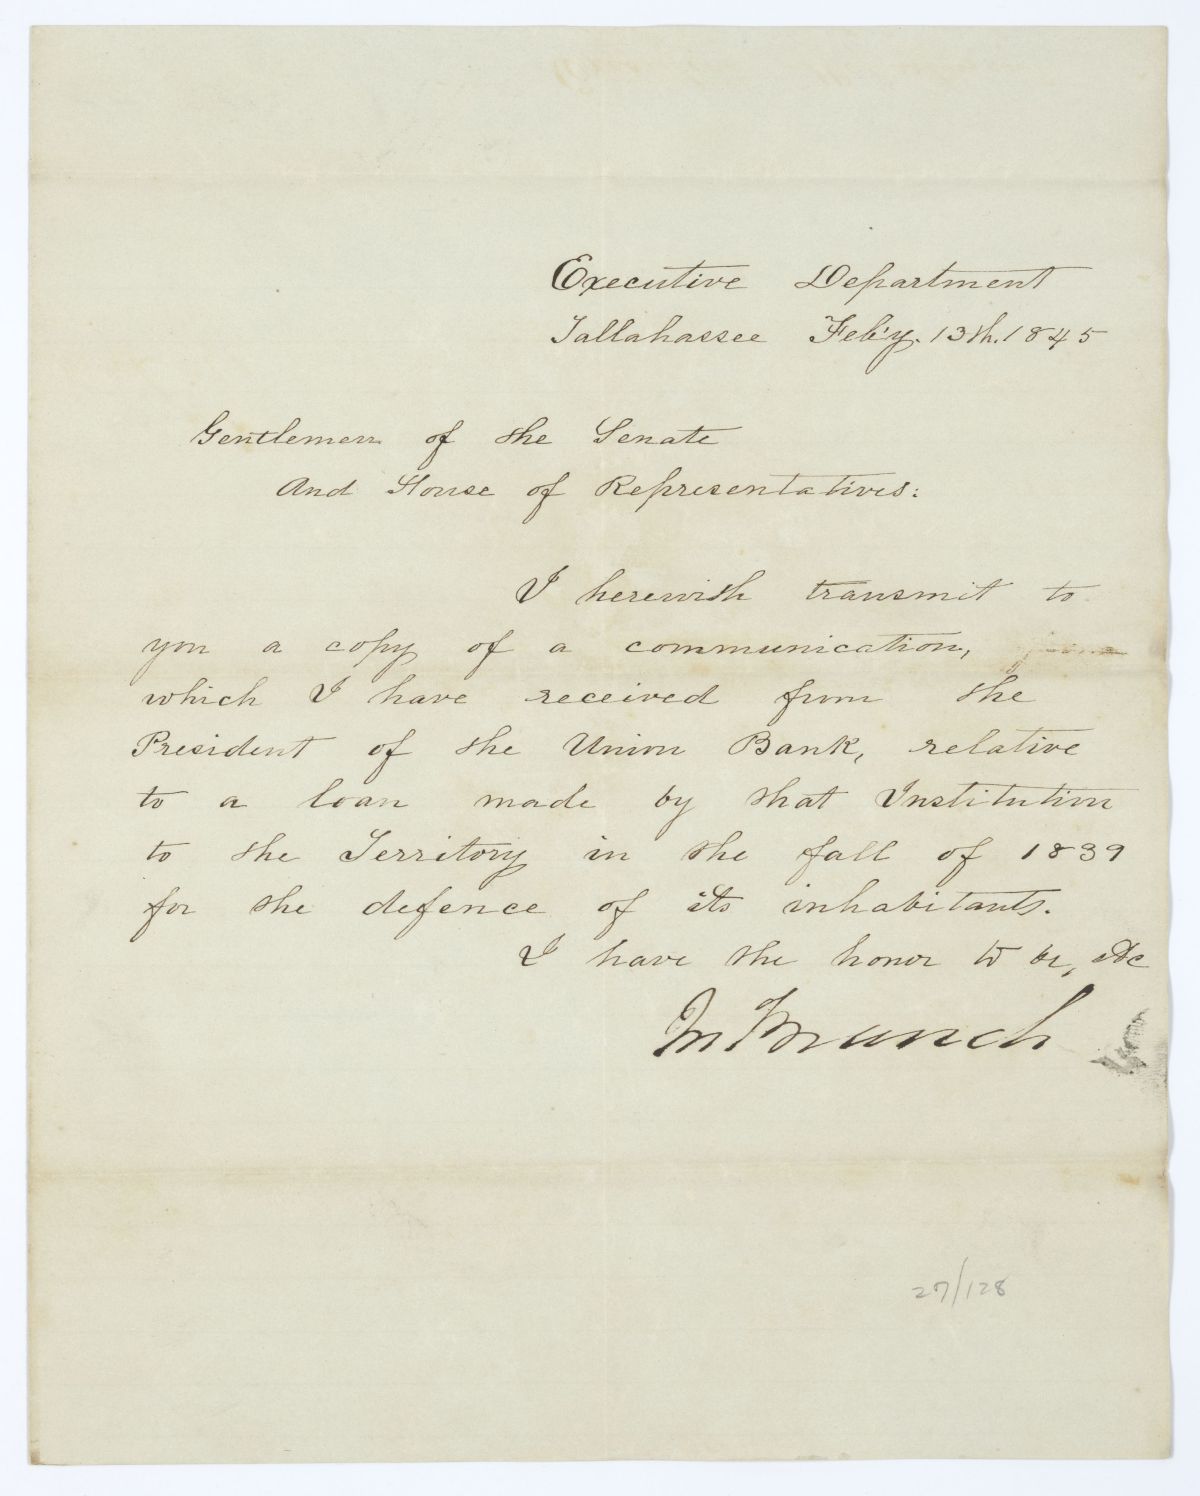 Executive Department
Tallahassee Feb'y. 13th. 1845
Gentlemen of the Senate
And House of Representatives:
I herewith transmit to
you a copy of a communication,
which I have received from the
President of the Union Bank, relative
to a loan made by that Institution
to the Territory in the fall of 1839
for the defence of its inhabitants.
I have the honor to be, &c
Jn Branch
27/128